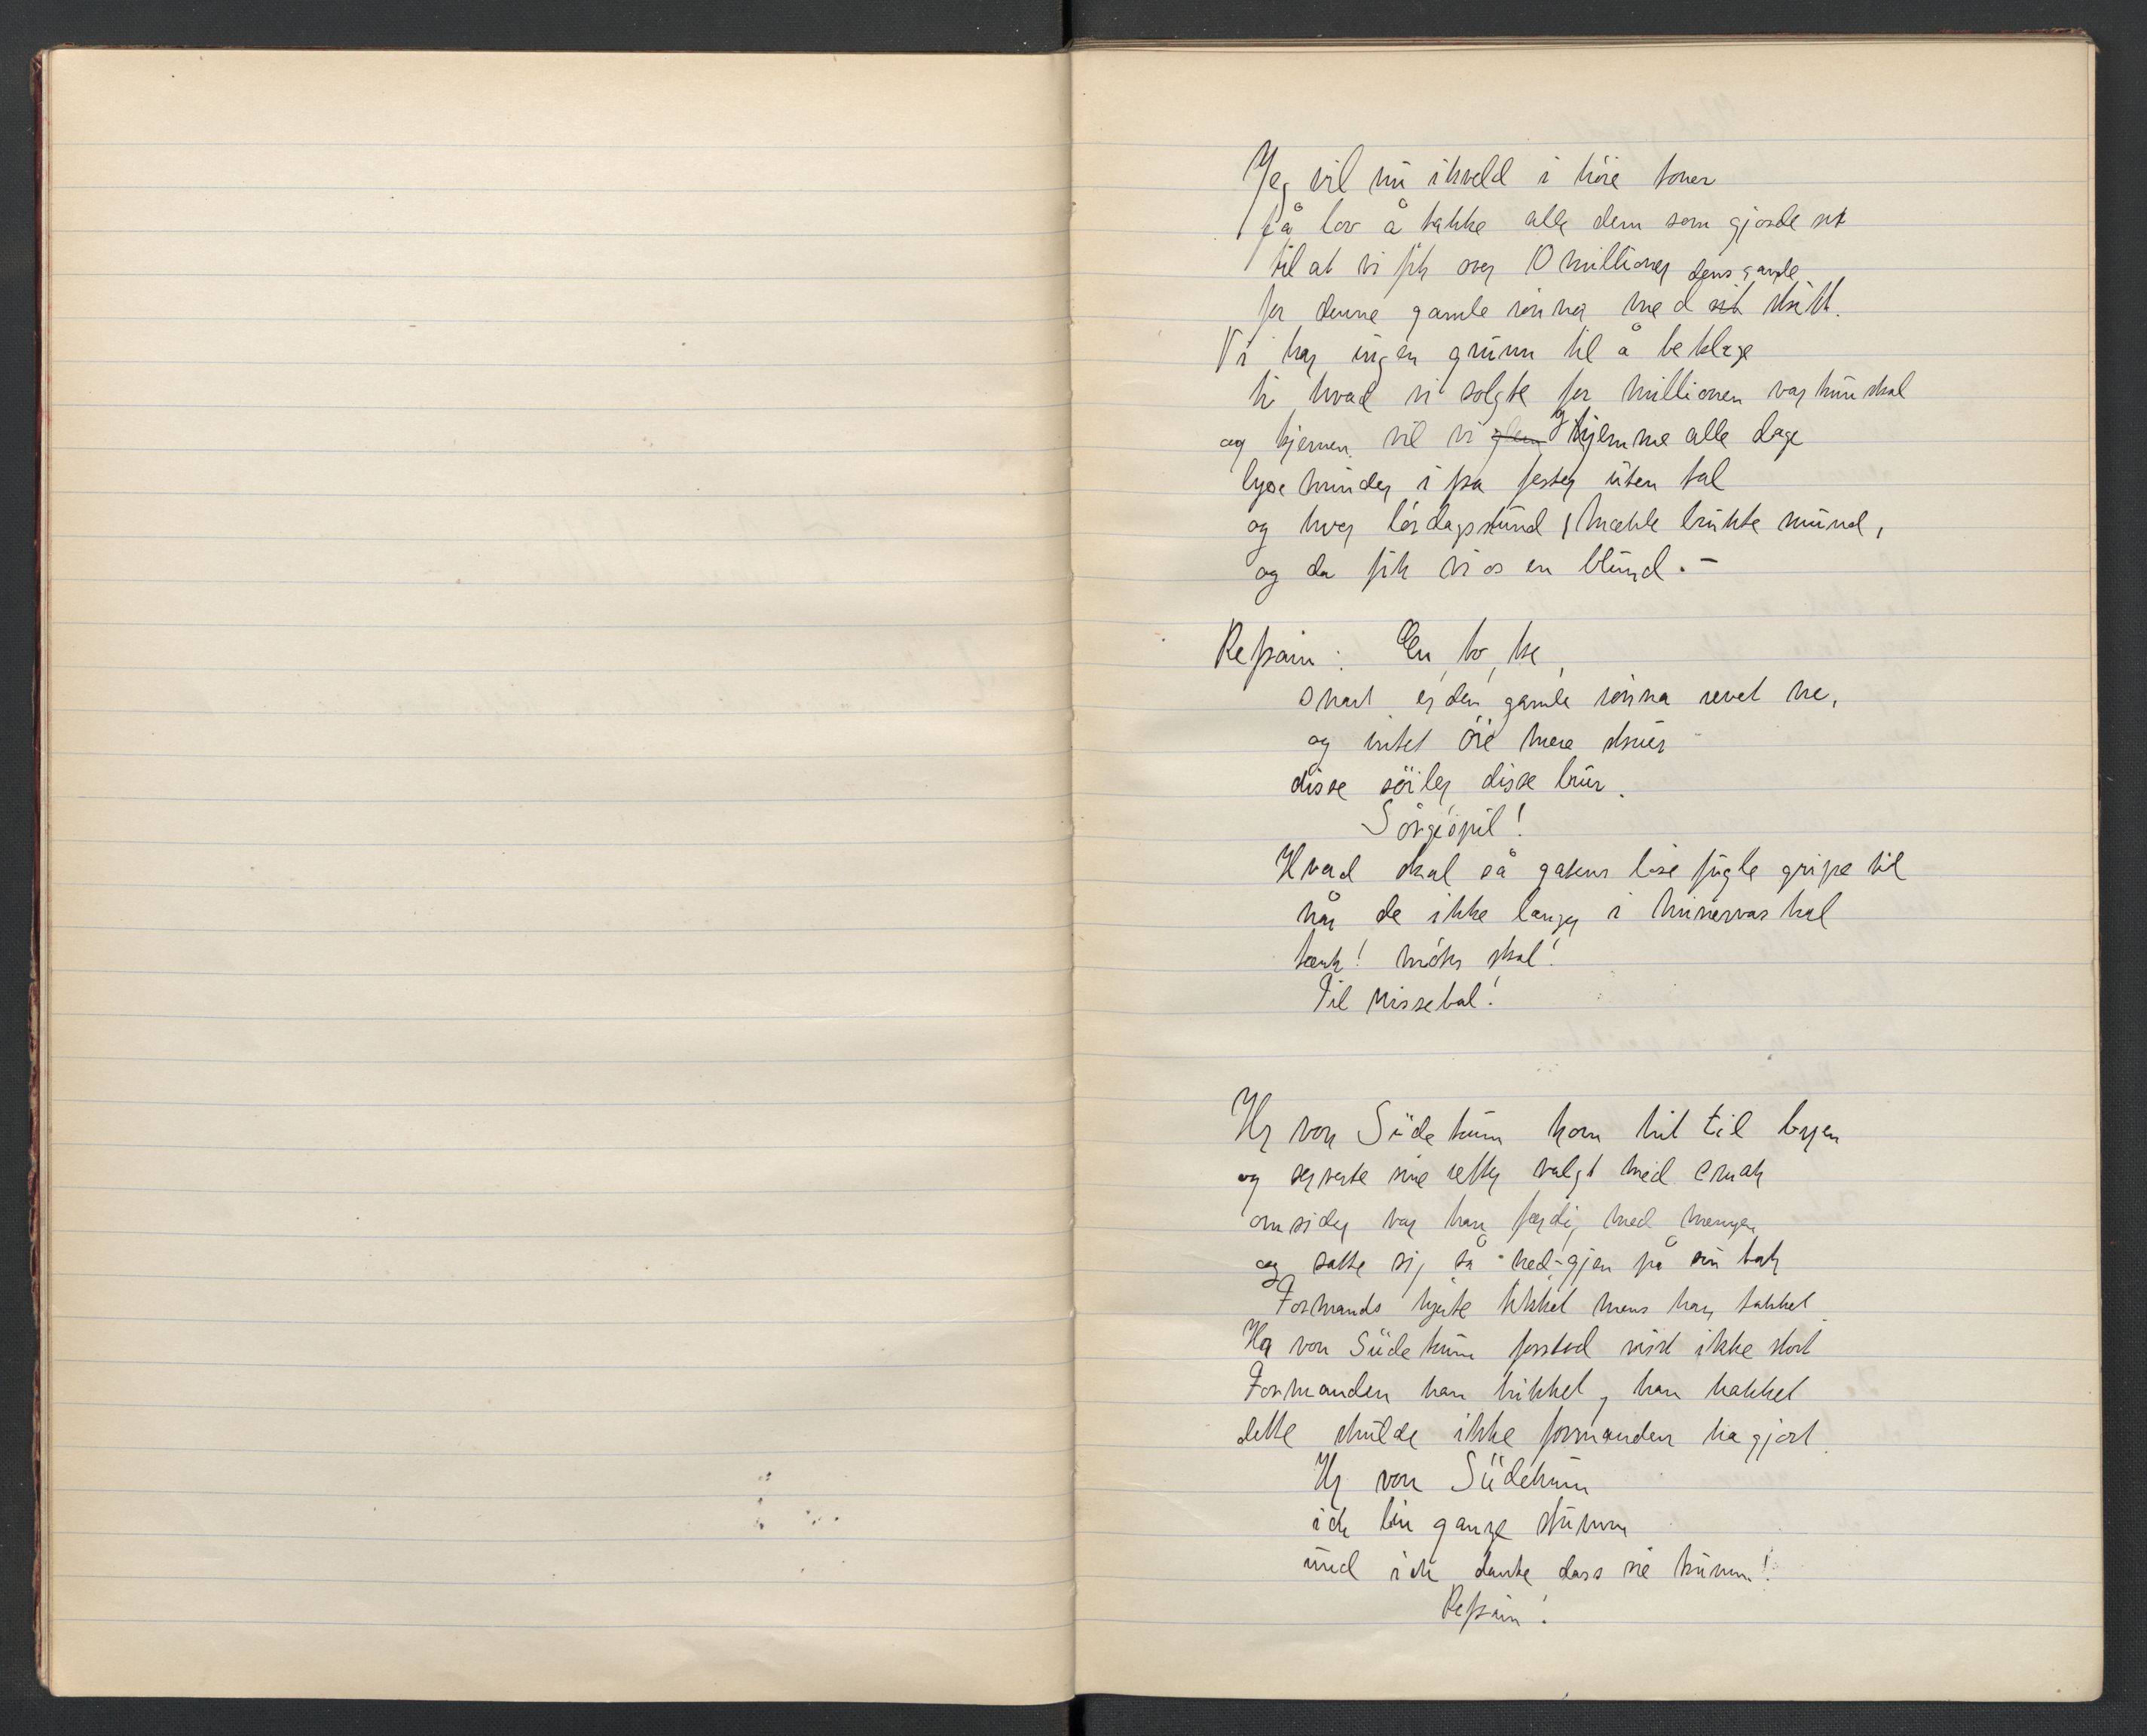 Jeg vil nu ikveld i höie toner
få lov å takke alle dem som gjorde sit
til at vi fik over 10 millioner dens gamle
for denne gamle rönna med sit skitt.
Vi har ingen grunn til å beklage
ti hvad vi solgte for millionen var kun skal
og kjernen vil vi glem gjemme alle dage
lyse minder i fra fester uten tal
og hver lördagstund, Mæhle brukte mund,
og da fik vi os en blund. –
Refrain: En, to, tre,
snart er den gamle rönna revet ne,
og intet öie mere skuer
disse söiler disse buer.
Sörgespil!
Hvad skal så gatens löse fugle gripe til
når de ikke lenger i Minervas hal
tænk! möter skal!
Til Nissebal!
Hr von Südekum kom hit til byen
og serverte sine retter valgt med smak
omsider var han færdig med menyen
og satte sig så ned igjen på sin bak
Formands hjerte tikket mens han takket.
Hr von Südekum forstod visst ikke stort
Formanden han hikket, han hakket
dette skulde ikke formanden ha gjort.
Hr von Südekum
ich bin ganze stumm
und ich danke dass sie kumm!
Refrain!